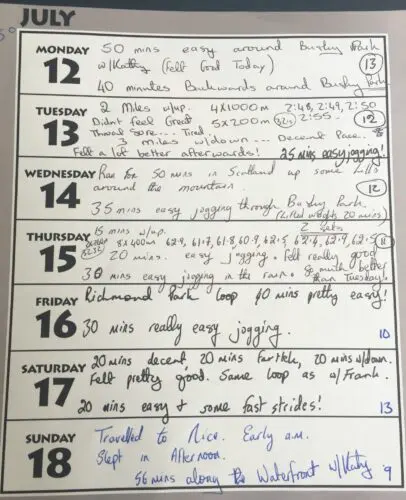 JULY
MONDAY 50 mins easy around Bushy Park
12 w/Kathy (Felt Good Today) 13
40 minutes Backwards around Bushy Park
TUESDAY 2 Miles w/up. 4x1000m 2:48, 2:49, 2:50
13 Didnt feel Great 5x200m 2:55. 12
Throat Sore... Tired. 3 miles w/down... Decent Pace.
Felt a lot better afterwards! 25 mins easy jogging!
WEDNESDAY Ran for 50 mins in Scotland up some hills
14 around the mountain. 12
35 mins easy jogging through Bushy Park.
(Lifted weights 20 mins)
THURSDAY 15 mins w/up. 2 sets
15 8x400m 62.9, 61.7, 61.8, 60.9, 62.5 62.4, 62.9, 62.5 11
20 mins. easy jogging. Felt really good
30 mins easy jogging in the rain. So much better than Tuesday!
FRIDAY Richmond Park loop 40 mins pretty easy!
16 30 mins really easy jogging. 10
SATURDAY 20 mins decent, 20 mins fartlek, 20 mins w/down.
17 Felt pretty good. Same loop as w/Frank.
20 mins easy + some fast strides! 13
SUNDAY Travelled to Nice. Early a.m.
18 Slept in Afternoon.
56 mins along the Waterfront w/Kathy 9